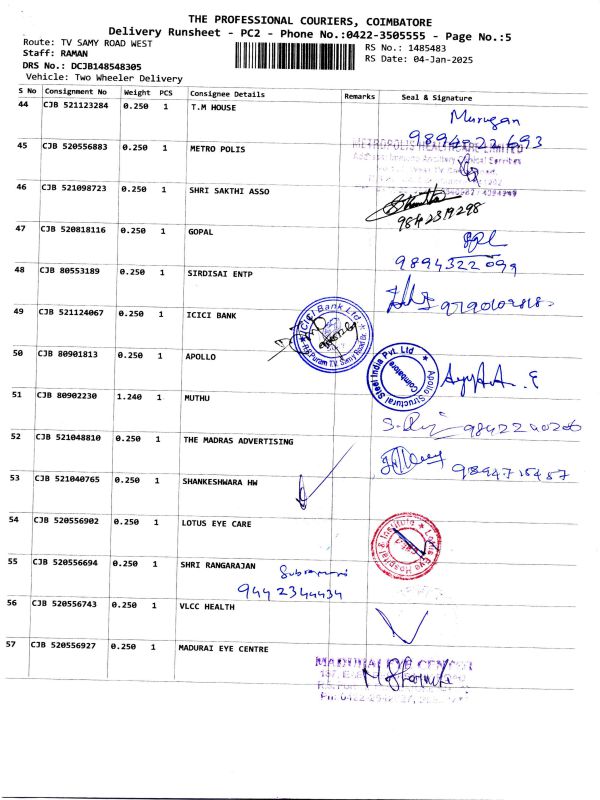 THE PROFESSIONAL COURIERS, COIMBATORE
Delivery Runsheet - PC2 - Phone No.:0422-3505555 - Page No.:5
Route: TV SAMY ROAD WEST
RS No.: 1485483
Staff: RAMAN
RS Date: 04-Jan-2025
DRS No.: DCJB148548305
Vehicle: Two Wheeler Delivery
S No Consignment No Weight PCS Consignee Details Remarks Seal & Signature
44 CJB 521123284 0.250 1 T.M HOUSE Murugan
45 CJB 520556883 0.250 1 METRO POLIS
METROPOLIS HEALTHCARE LIMITED
46 CJB 521098723 0.250 1 SHRI SAKTHI ASSO
9842319298
47 CJB 520818116 0.250 1 GOPAL
9894322099
48 CJB 80553189 0.250 1 SIRDISAI ENTP
49 CJB 521124067 0.250 1 ICICI BANK
ICICI Bank Ltd
R.S.Puram T.V. Samy Road Br.
50 CJB 80901813 0.250 1 APOLLO
Apollo Structural Steel India Pvt. Ltd
Coimbatore
51 CJB 80902230 1.240 1 MUTHU
9842240206
52 CJB 521048810 0.250 1 THE MADRAS ADVERTISING
9894715457
53 CJB 521040765 0.250 1 SHANKESHWARA HW
54 CJB 520556902 0.250 1 LOTUS EYE CARE
Lotus Eye Hospital & Institute
55 CJB 520556694 0.250 1 SHRI RANGARAJAN
9442344434
56 CJB 520556743 0.250 1 VLCC HEALTH
57 CJB 520556927 0.250 1 MADURAI EYE CENTRE
MADURAI EYE CENTRE